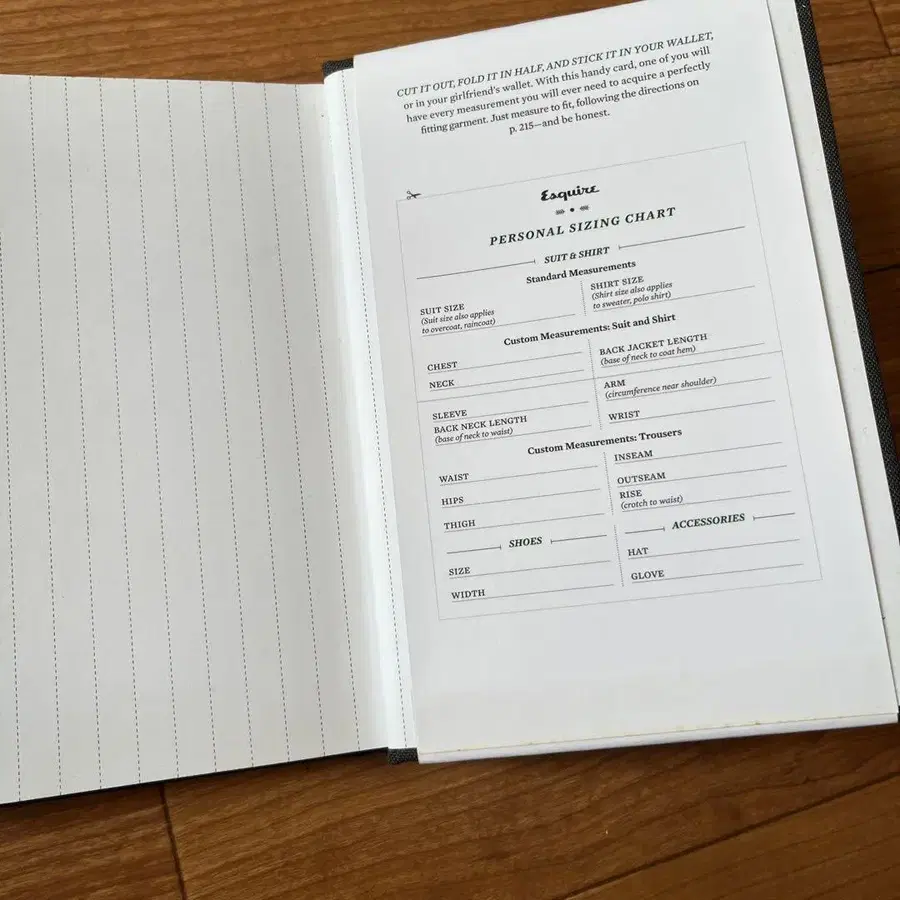 CUT IT OUT, FOLD IT IN HALF, AND STICK IT IN YOUR WALLET,
or in your girlfriend's wallet. With this handy card, one of you will
have every measurement you will ever need to acquire a perfectly
fitting garment. Just measure to fit, following the directions on
p. 215—and be honest.
Esquire
PERSONAL SIZING CHART
SUIT & SHIRT
Standard Measurements
SUIT SIZE
(Suit size also applies
to overcoat, raincoat)
SHIRT SIZE
(Shirt size also applies
to sweater, polo shirt)
Custom Measurements: Suit and Shirt
CHEST
NECK
SLEEVE
BACK NECK LENGTH
(base of neck to waist)
BACK JACKET LENGTH
(base of neck to coat hem)
ARM
(circumference near shoulder)
WRIST
Custom Measurements: Trousers
WAIST
HIPS
THIGH
INSEAM
OUTSEAM
RISE
(crotch to waist)
SHOES
SIZE
WIDTH
ACCESSORIES
HAT
GLOVE